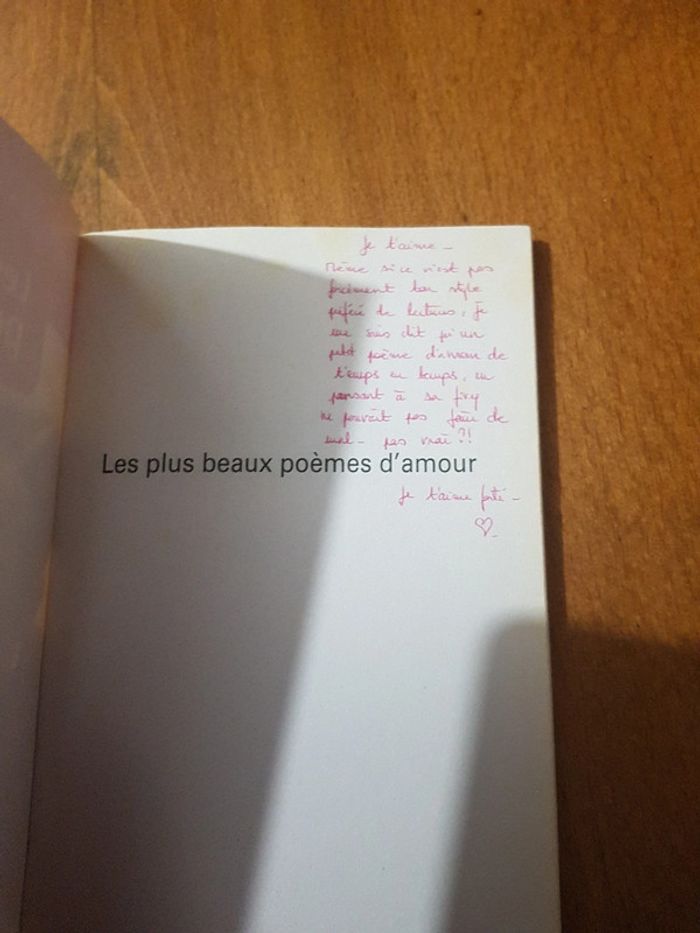 Je t'aime -
Même si ce n'est pas
forcément ton style
préféré de lectures, je
me suis dit qu'un
petit poème d'amour de
temps en temps, en
pensant à sa
ne pouvait pas faire de
mal - pas vrai ?!
Les plus beaux poèmes d'amour
Je t'aime forte -